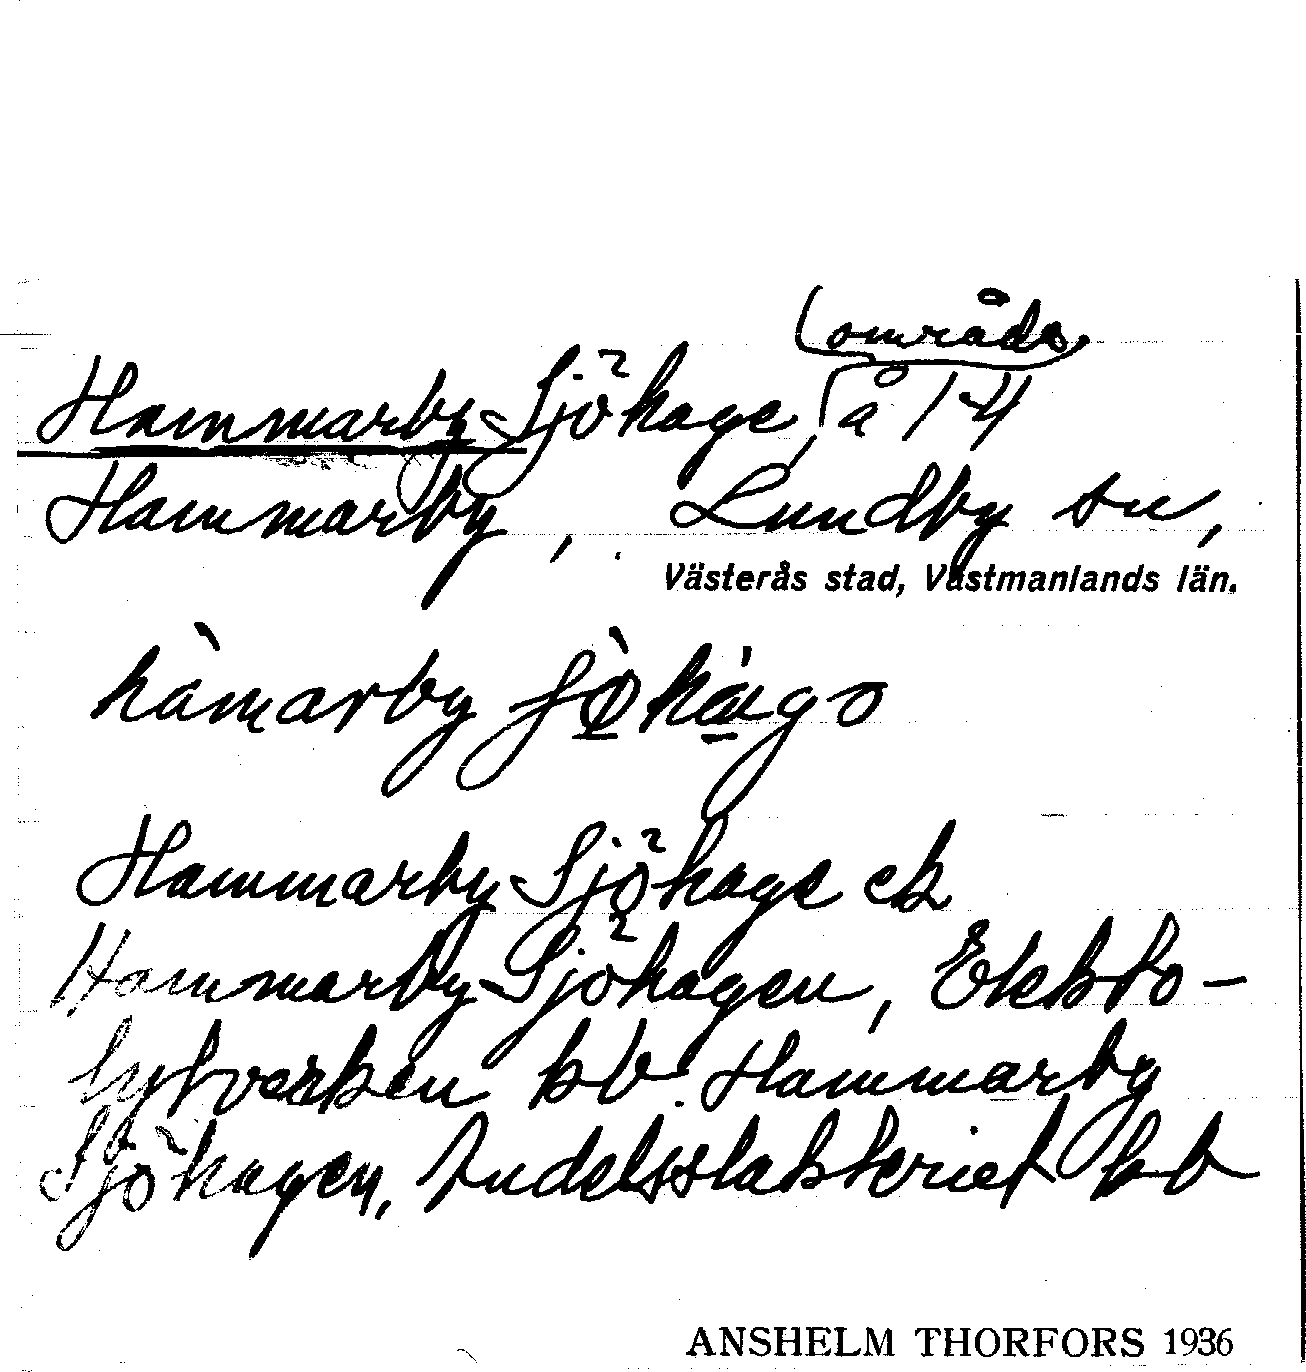 område
Hammarby-Sjöhage, å 1-4
Hammarby, Lundby sn,
Västerås stad, Västmanlands län.
hàmarby
Hammarby-Sjöhage ek
Hammarby-Sjöhagen, Elekto-
lytverken kv. Hammarby
Sjöhagen, Andelsslakteriet kv
ANSHELM THORFORS 1936